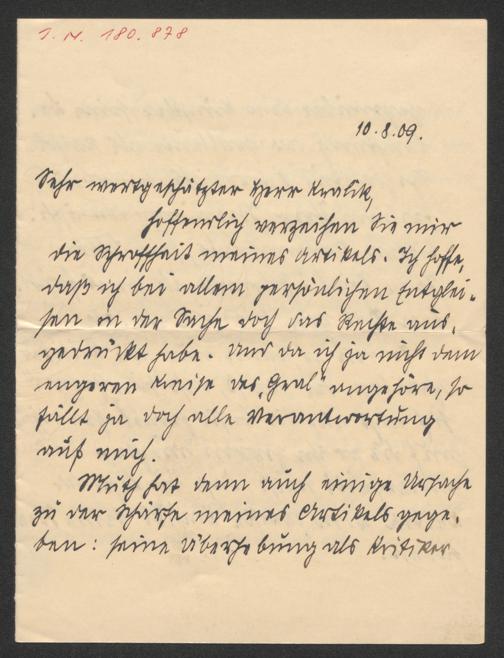 I. N. 180.878
10.8.09.
Sehr wertgeschätzter Herr Kralik,
hoffentlich verzeihen Sie mir
die Schroffheit meines Artikels. Ich hoffe,
daß ich bei allem persönlichen Entglei-
sen in der Sache doch das Rechte aus-
gedrückt habe. Und da ich ja nicht dem
engeren Kreise des „Gral" angehöre, so
fällt ja doch alle Verantwortung
auf mich.
Muth hat denn auch einige Ursache
zu der Schärfe meines Artikels gege-
ben: seine Überhebung als Kritiker